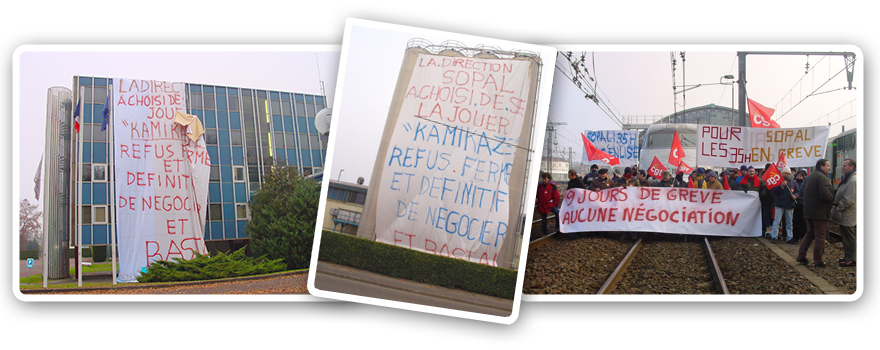 LA DIREC
A CHOISI DE
JOUE
"KAMIK
REFUS FERME
ET
DEFINITIF
DE NEGOCIER
ET
BAST
LA DIRECTION
SOPAL
A CHOISI. DE. SE
LA JOUER
"KAMIKAZ
REFUS. FERME
ET DEFINITIF
DE NEGOCIER
ET BASTA
SOPAL 35H
POUR
LES 35H
SOPAL
EN GREVE
CGT
CGT
CGT
CGT
9 JOURS DE GREVE
AUCUNE NÉGOCIATION